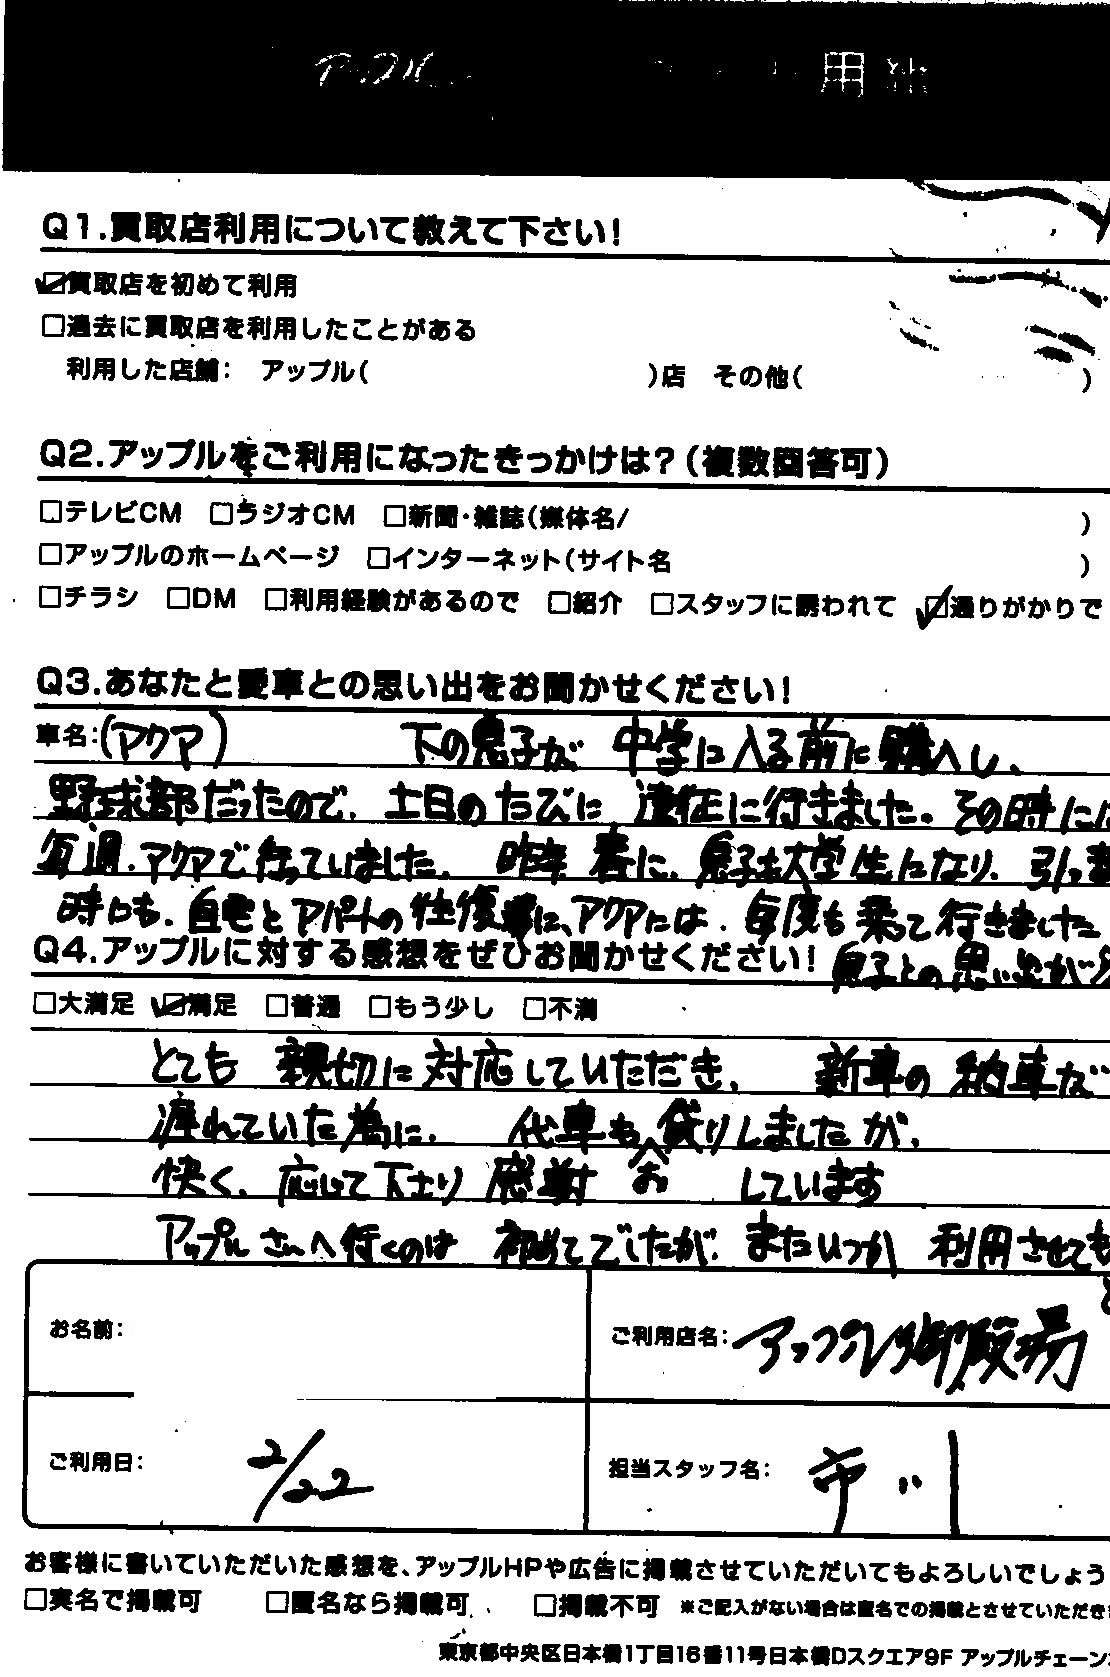 用
Q1.買取店利用について教えて下さい!
☑買取店を初めて利用
□過去に買取店を利用したことがある
利用した店舗: アップル( )店 その他( )
Q2.アップルをご利用になったきっかけは?(複数回答可)
□テレビCM □ラジオCM □新聞・雑誌(媒体名/ )
□アップルのホームページ □インターネット(サイト名 )
□チラシ □DM □利用経験があるので □紹介 □スタッフに誘われて ☑通りがかりで
Q3.あなたと愛車との思い出をお聞かせください!
車名:(アクア) 下の息子が 中学に入る前に購入し、
野球部だったので、土日のたびに 遠征に行きました。その時には
毎週、アクアで行っていました。 昨年 春に、息子も大学生になり、引っ
時にも、自宅とアパートの往復に、アクアには、毎度も乗って行きました
Q4.アップルに対する感想をぜひお聞かせください! 息子との思い出が
□大満足 ☑満足 □普通 □もう少し □不満
とても 親切に対応していただき、 新車の納車が
遅れていた為に、 代車もお貸りしましたが、
快く、応じて下さり 感謝 しています
アップルさんへ行くのは 初めてでしたが、またいつか 利用させても
お名前: ご利用店名:アップル御殿場
ご利用日: 2/22 担当スタッフ名: 市川
お客様に書いていただいた感想を、アップルHPや広告に掲載させていただいてもよろしいでしょう
□実名で掲載可 □匿名なら掲載可 □掲載不可 ※ご記入がない場合は匿名での掲載とさせていただき
東京都中央区日本橋1丁目16番11号日本橋Dスクエア9F アップルチェーン